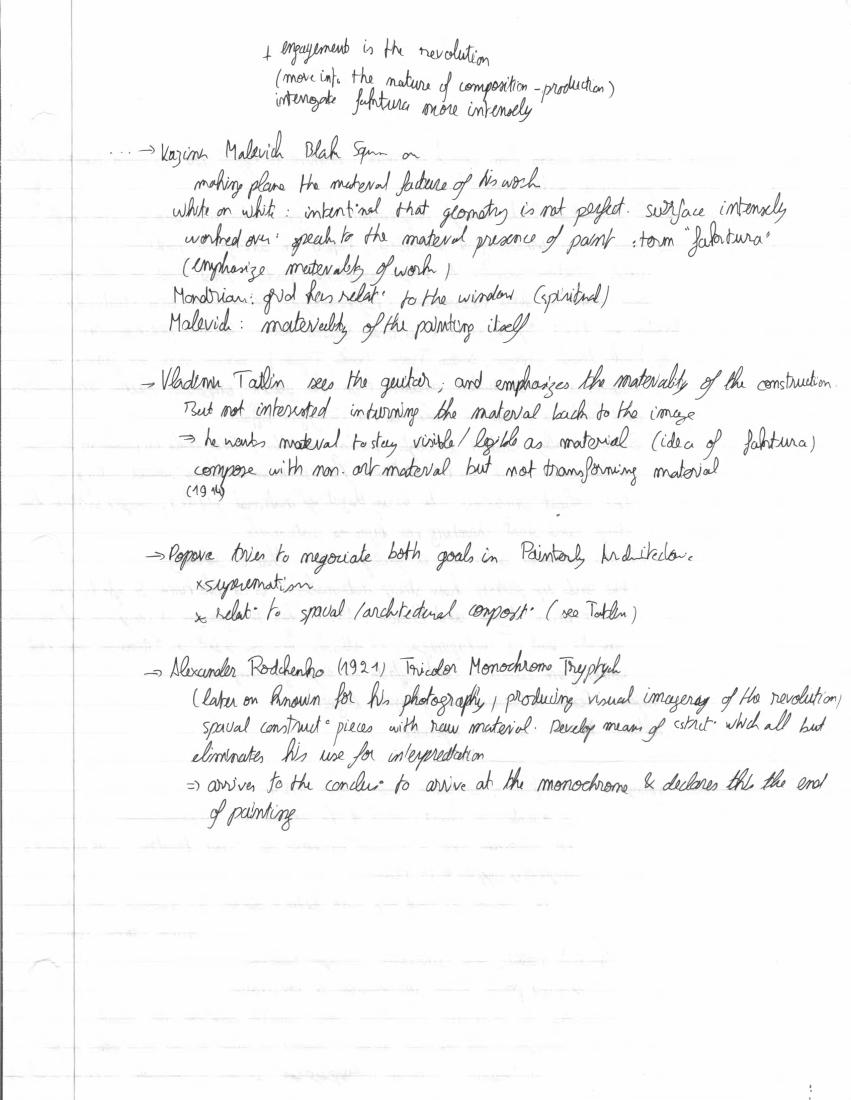 + engagement is the revolution
(move into the nature of composition - production)
interrogate faktura more intensely
... → Kazimir Malevich Blak Squ on
making plane the material facture of his work
white on white : intentinal that geometry is not perfect. surface intensely
worked over. speak to the material presence of paint : term "faktura"
(emphasize materiality of work)
Mondrian : grid has relat° to the window (spiritual)
Malevich : materiality of the painting itself
→ Vladimir Tatlin sees the guitar, and emphasizes the materiality of the construction.
But not interested in turning the material back to the image
⇒ he wants material to stay visible / legible as material (idea of faktura)
compose with non. art material but not transforming material
(1914)
→ Popova tries to negociate both goals in Painterly Architectonic
x suprematism
x relat° to spacial / architectural composit° (see Tatlin)
→ Alexander Rodchenko (1921) Tricolor Monochrome Tryptych
(later on known for his photography, producing visual imagerag of the revolution)
spacial construct° pieces with raw material. Develop means of cstrct° which all but
eliminates his use for interpretation
⇒ arrives to the conclus° to arrive at the monochrome & declares this the end
of painting